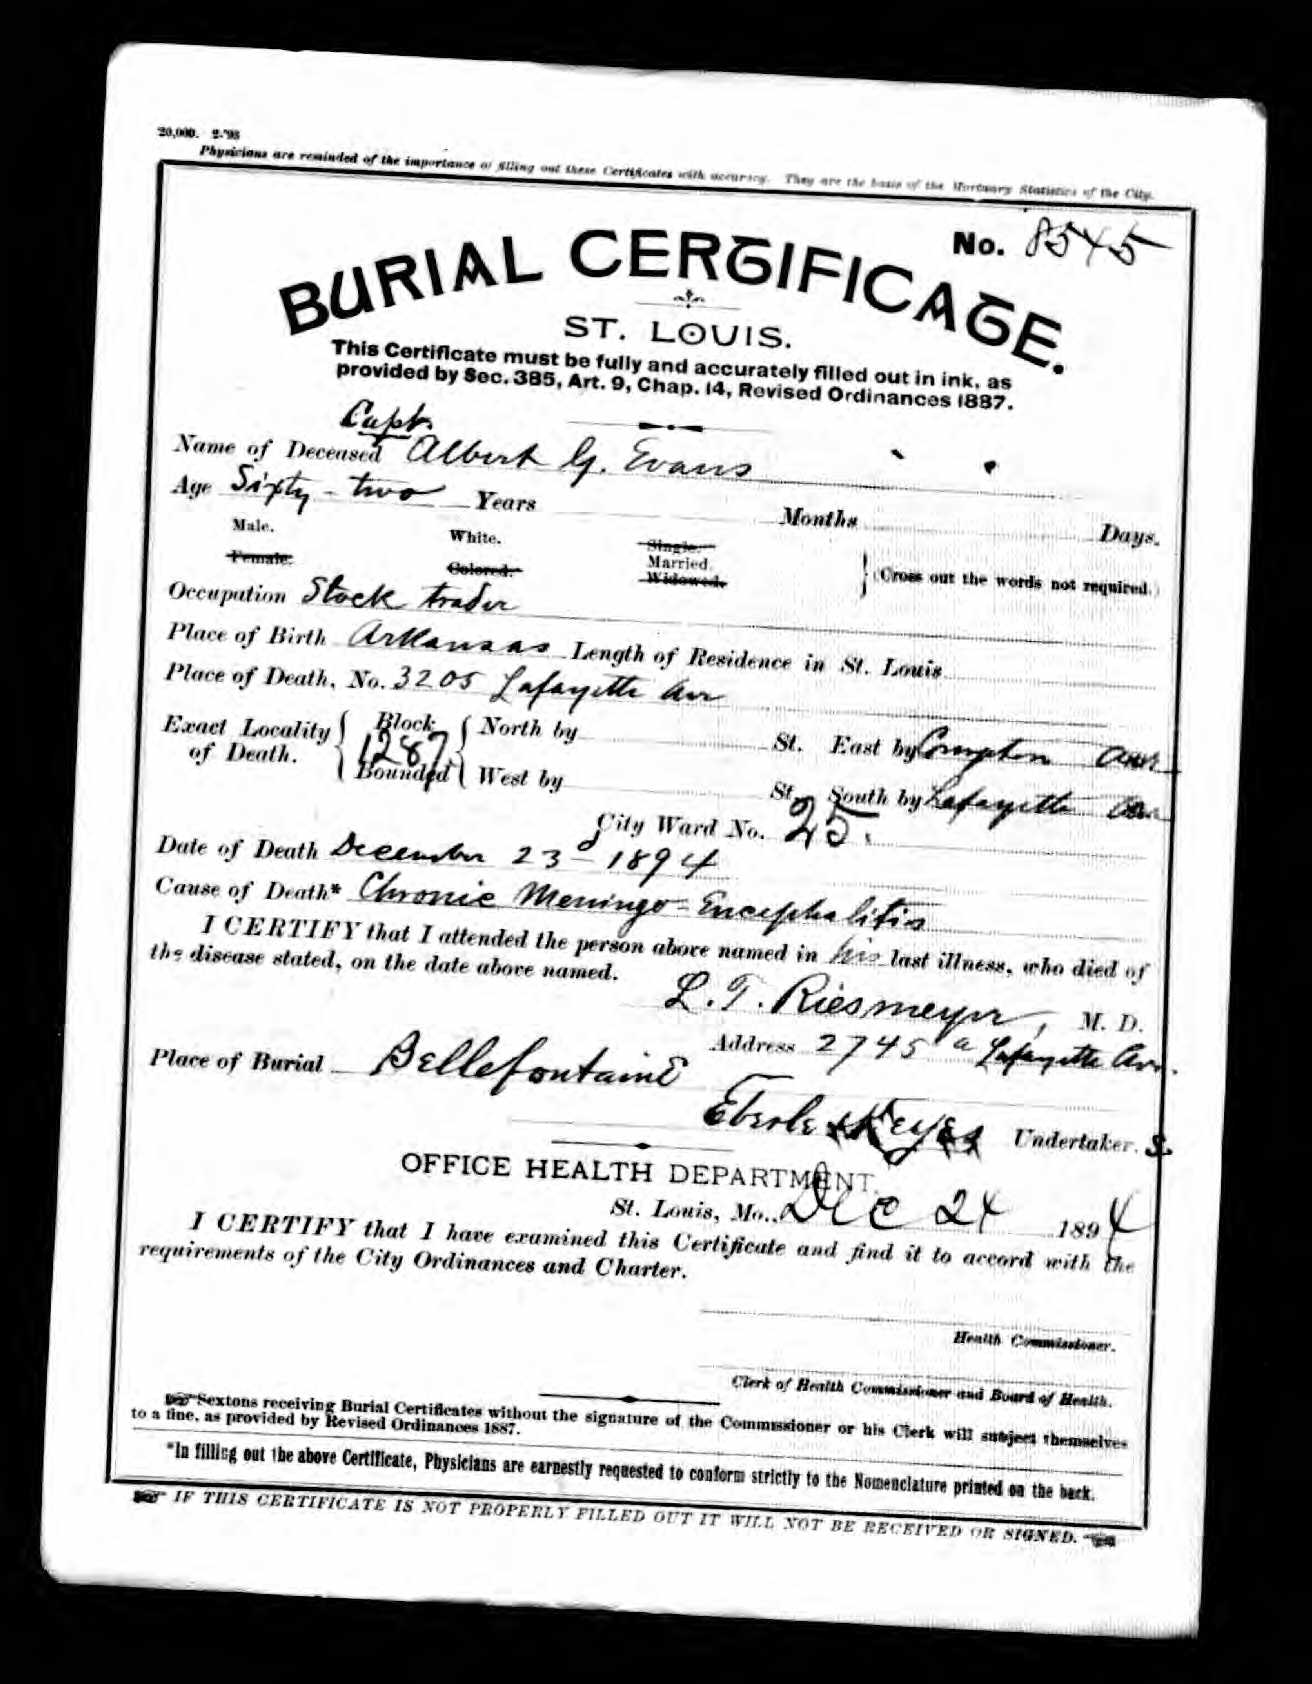 20,000. 2-'93
Physicians are reminded of the importance of filling out these Certificates with accuracy. They are the basis of the Mortuary Statistics of the City.
No. 8545
BURIAL CERTIFICATE.
ST. LOUIS.
This Certificate must be fully and accurately filled out in ink, as
provided by Sec. 385, Art. 9, Chap. 14, Revised Ordinances 1887.
Capt.
Name of Deceased Albert G. Evans
Age Sixty-two Years Months Days.
Male. White. Single.
Married.
Female. Colored. Widowed. (Cross out the words not required.)
Occupation Stock trader
Place of Birth Arkansas Length of Residence in St. Louis
Place of Death, No. 3205 Lafayette Ave
Exact Locality of Death. Block 1287 Bounded North by St. East by Compton Ave
West by St. South by Lafayette Ave
City Ward No. 25.
Date of Death December 23d 1894
Cause of Death* Chronic Meningo-Encephalitis
I CERTIFY that I attended the person above named in his last illness, who died of
the disease stated, on the date above named.
L. T. Riesmeyer, M. D.
Address 2745a Lafayette Ave.
Place of Burial Bellefontaine
Eberle & Keyes Undertaker.s.
OFFICE HEALTH DEPARTMENT.
St. Louis, Mo., Dec 24 1894
I CERTIFY that I have examined this Certificate and find it to accord with the
requirements of the City Ordinances and Charter.
Health Commissioner.
Clerk of Health Commissioner and Board of Health.
Sextons receiving Burial Certificates without the signature of the Commissioner or his Clerk will subject themselves
to a fine, as provided by Revised Ordinances 1887.
*In filling out the above Certificate, Physicians are earnestly requested to conform strictly to the Nomenclature printed on the back.
IF THIS CERTIFICATE IS NOT PROPERLY FILLED OUT IT WILL NOT BE RECEIVED OR SIGNED.